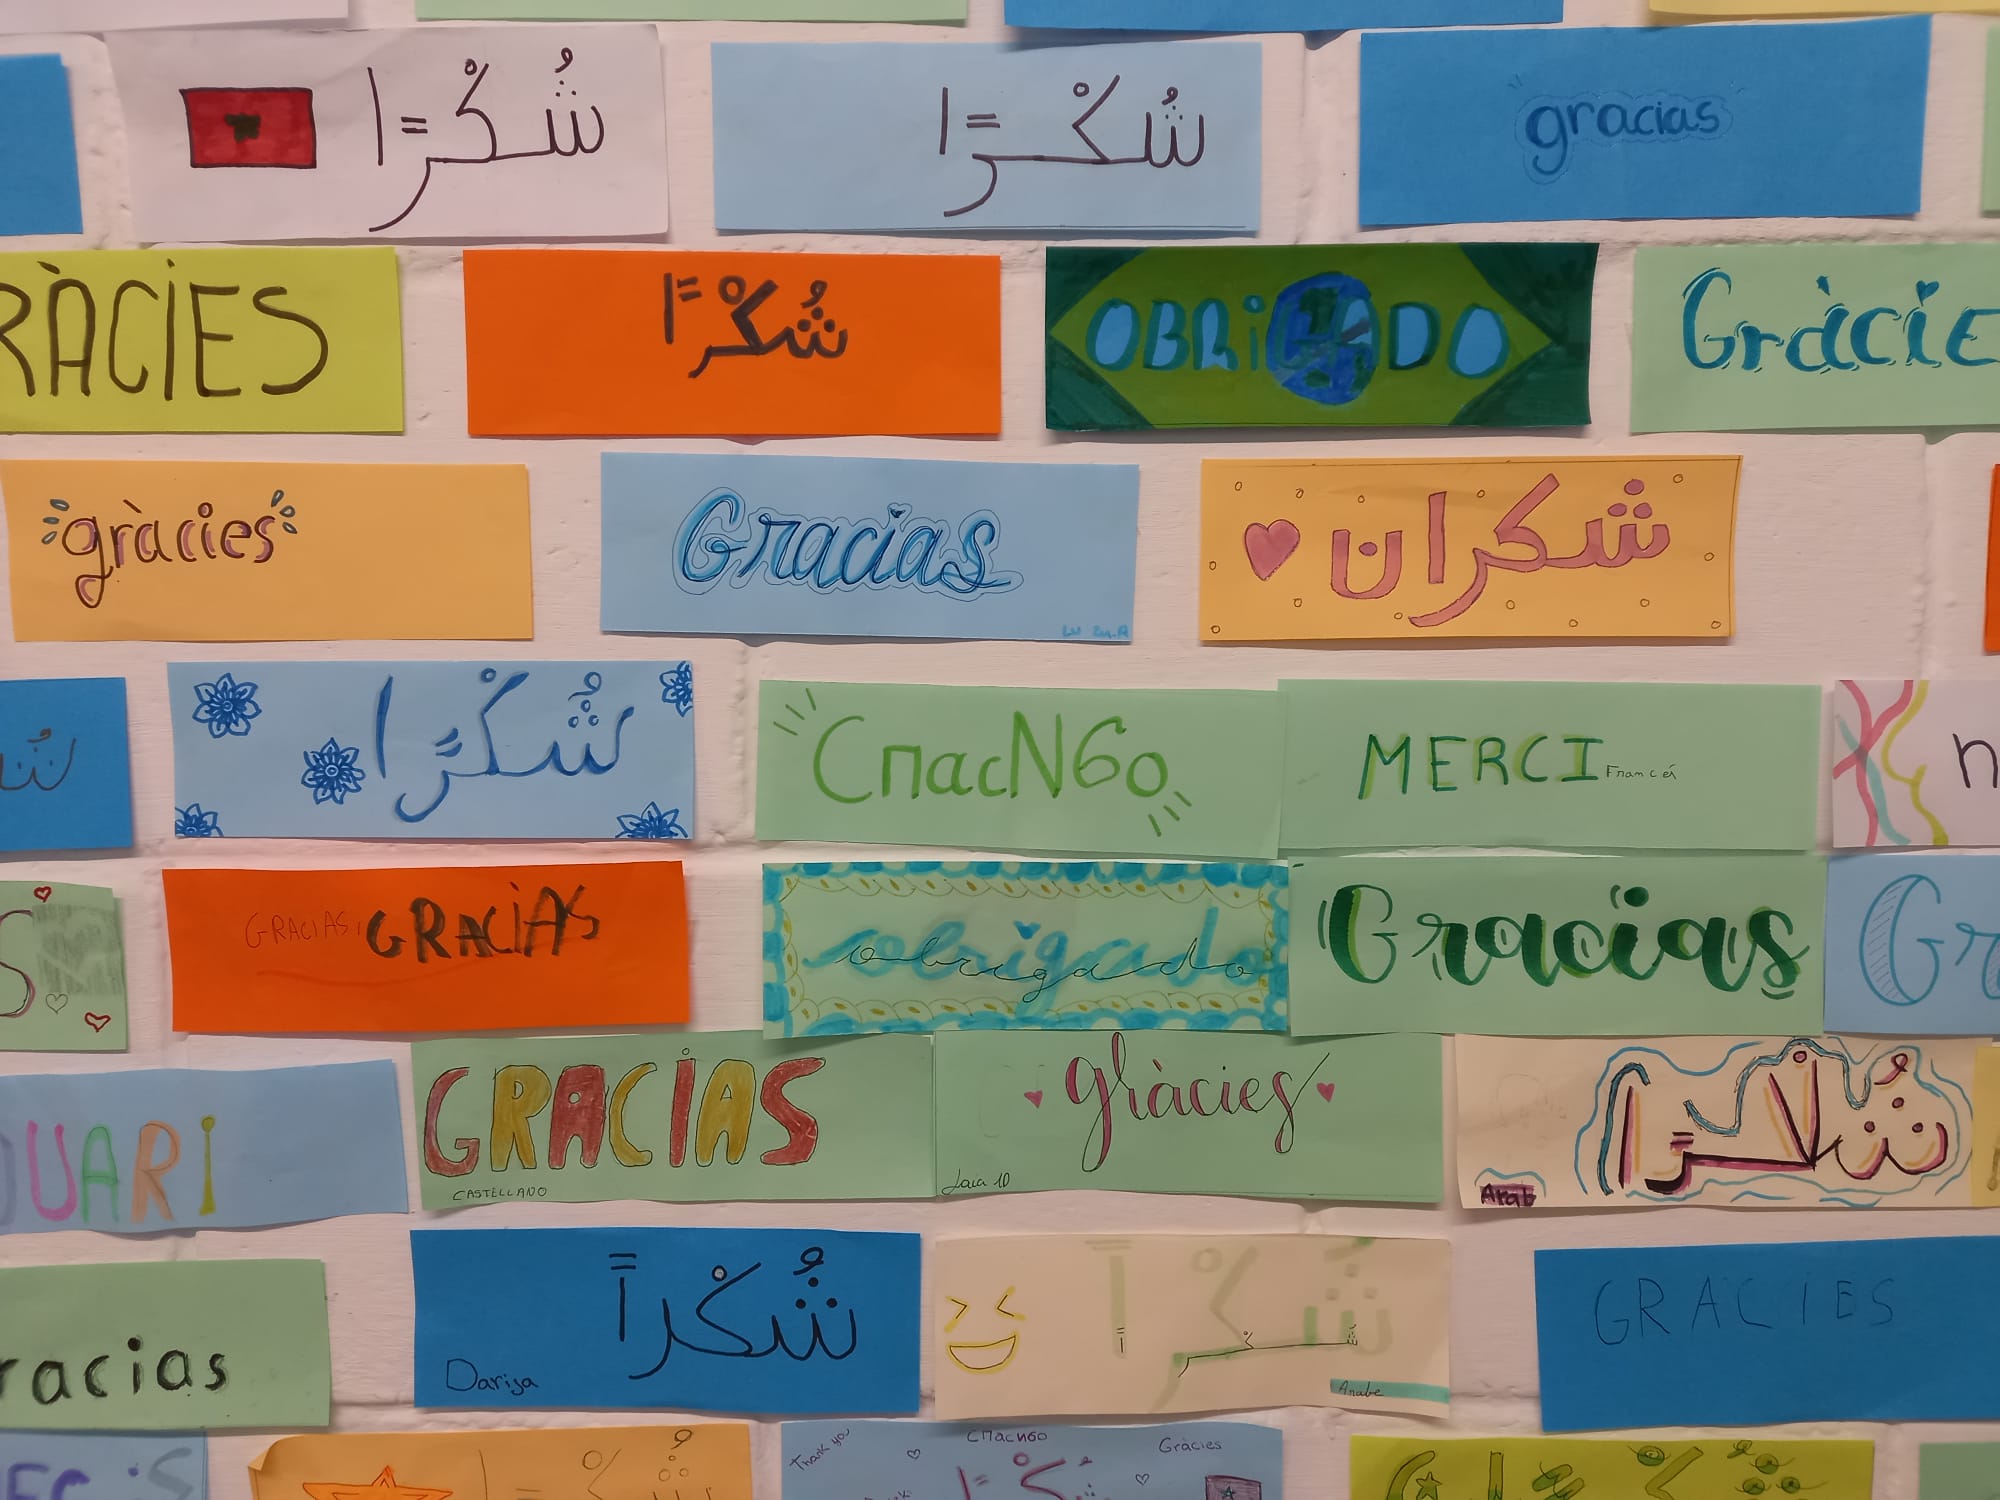 شُكْرًا
شُكْرًا
gracias
RÀCIES
شُكْرًا
OBRIGADO
Gràcie
gràcies
Gracias
شكران
شُكْرًا
СпасNбо
MERCI Francés
n
S
GRACIAS, GRACIAS
obrigado
Gracias
Gr
UARI
GRACIAS
CASTELLANO
gràcies
Laia 1D
شُكْرًا
Arab
racias
شُكْراً
Darija
شُكْراً
Arabe
GRÀCIES
Thank you
спасибо
Gràcies
شُكْرًا